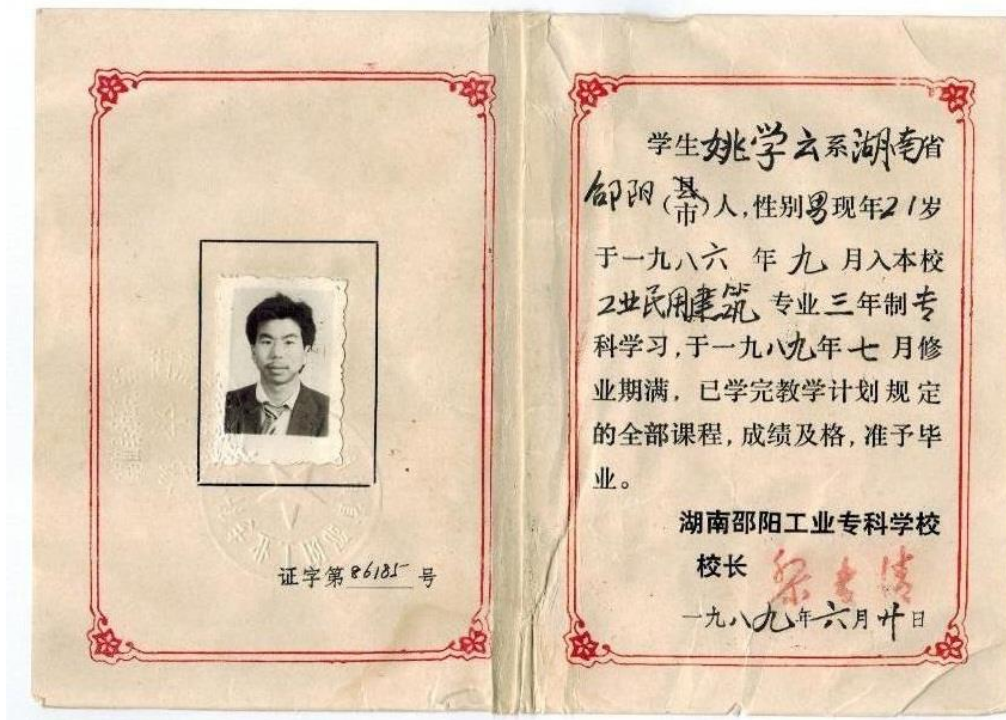 证字第 86185 号
学生姚学云系湖南省
邵阳(县市)人,性别男现年21岁
于一九八六 年 九 月入本校
工业民用建筑 专业三年制专
科学习,于一九八九年七月修
业期满,已学完教学计划规定
的全部课程,成绩及格,准予毕
业。
湖南邵阳工业专科学校
校长
一九八九年六月廿日